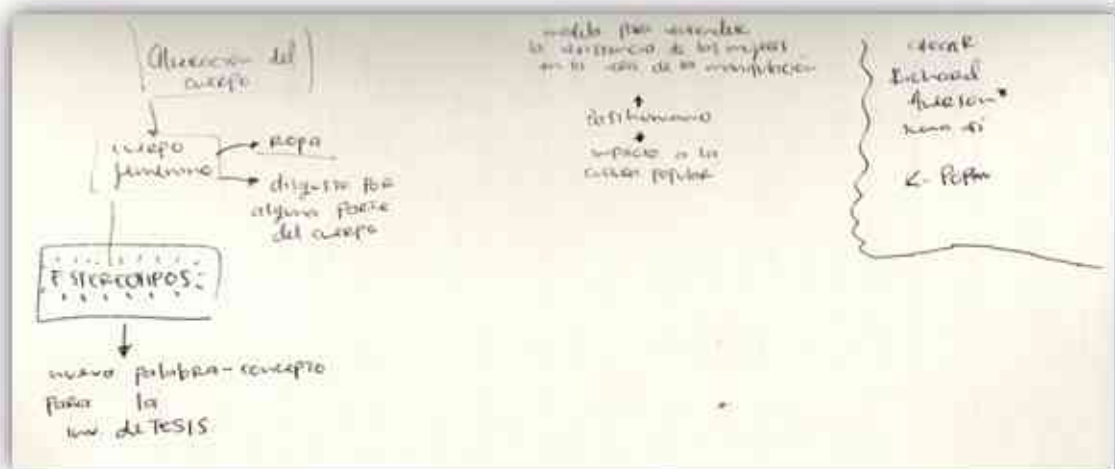 Alteración del
cuerpo
cuerpo
femenino
ROPA
disgusto por
alguna parte
del cuerpo
ESTEREOTIPOS:
nueva palabra-concepto
para la
inv. de TESIS
para entender
la de las mujeres
en la de la manipulación
Posthumano
impacto a la
cultura popular
CHECAR
Richard